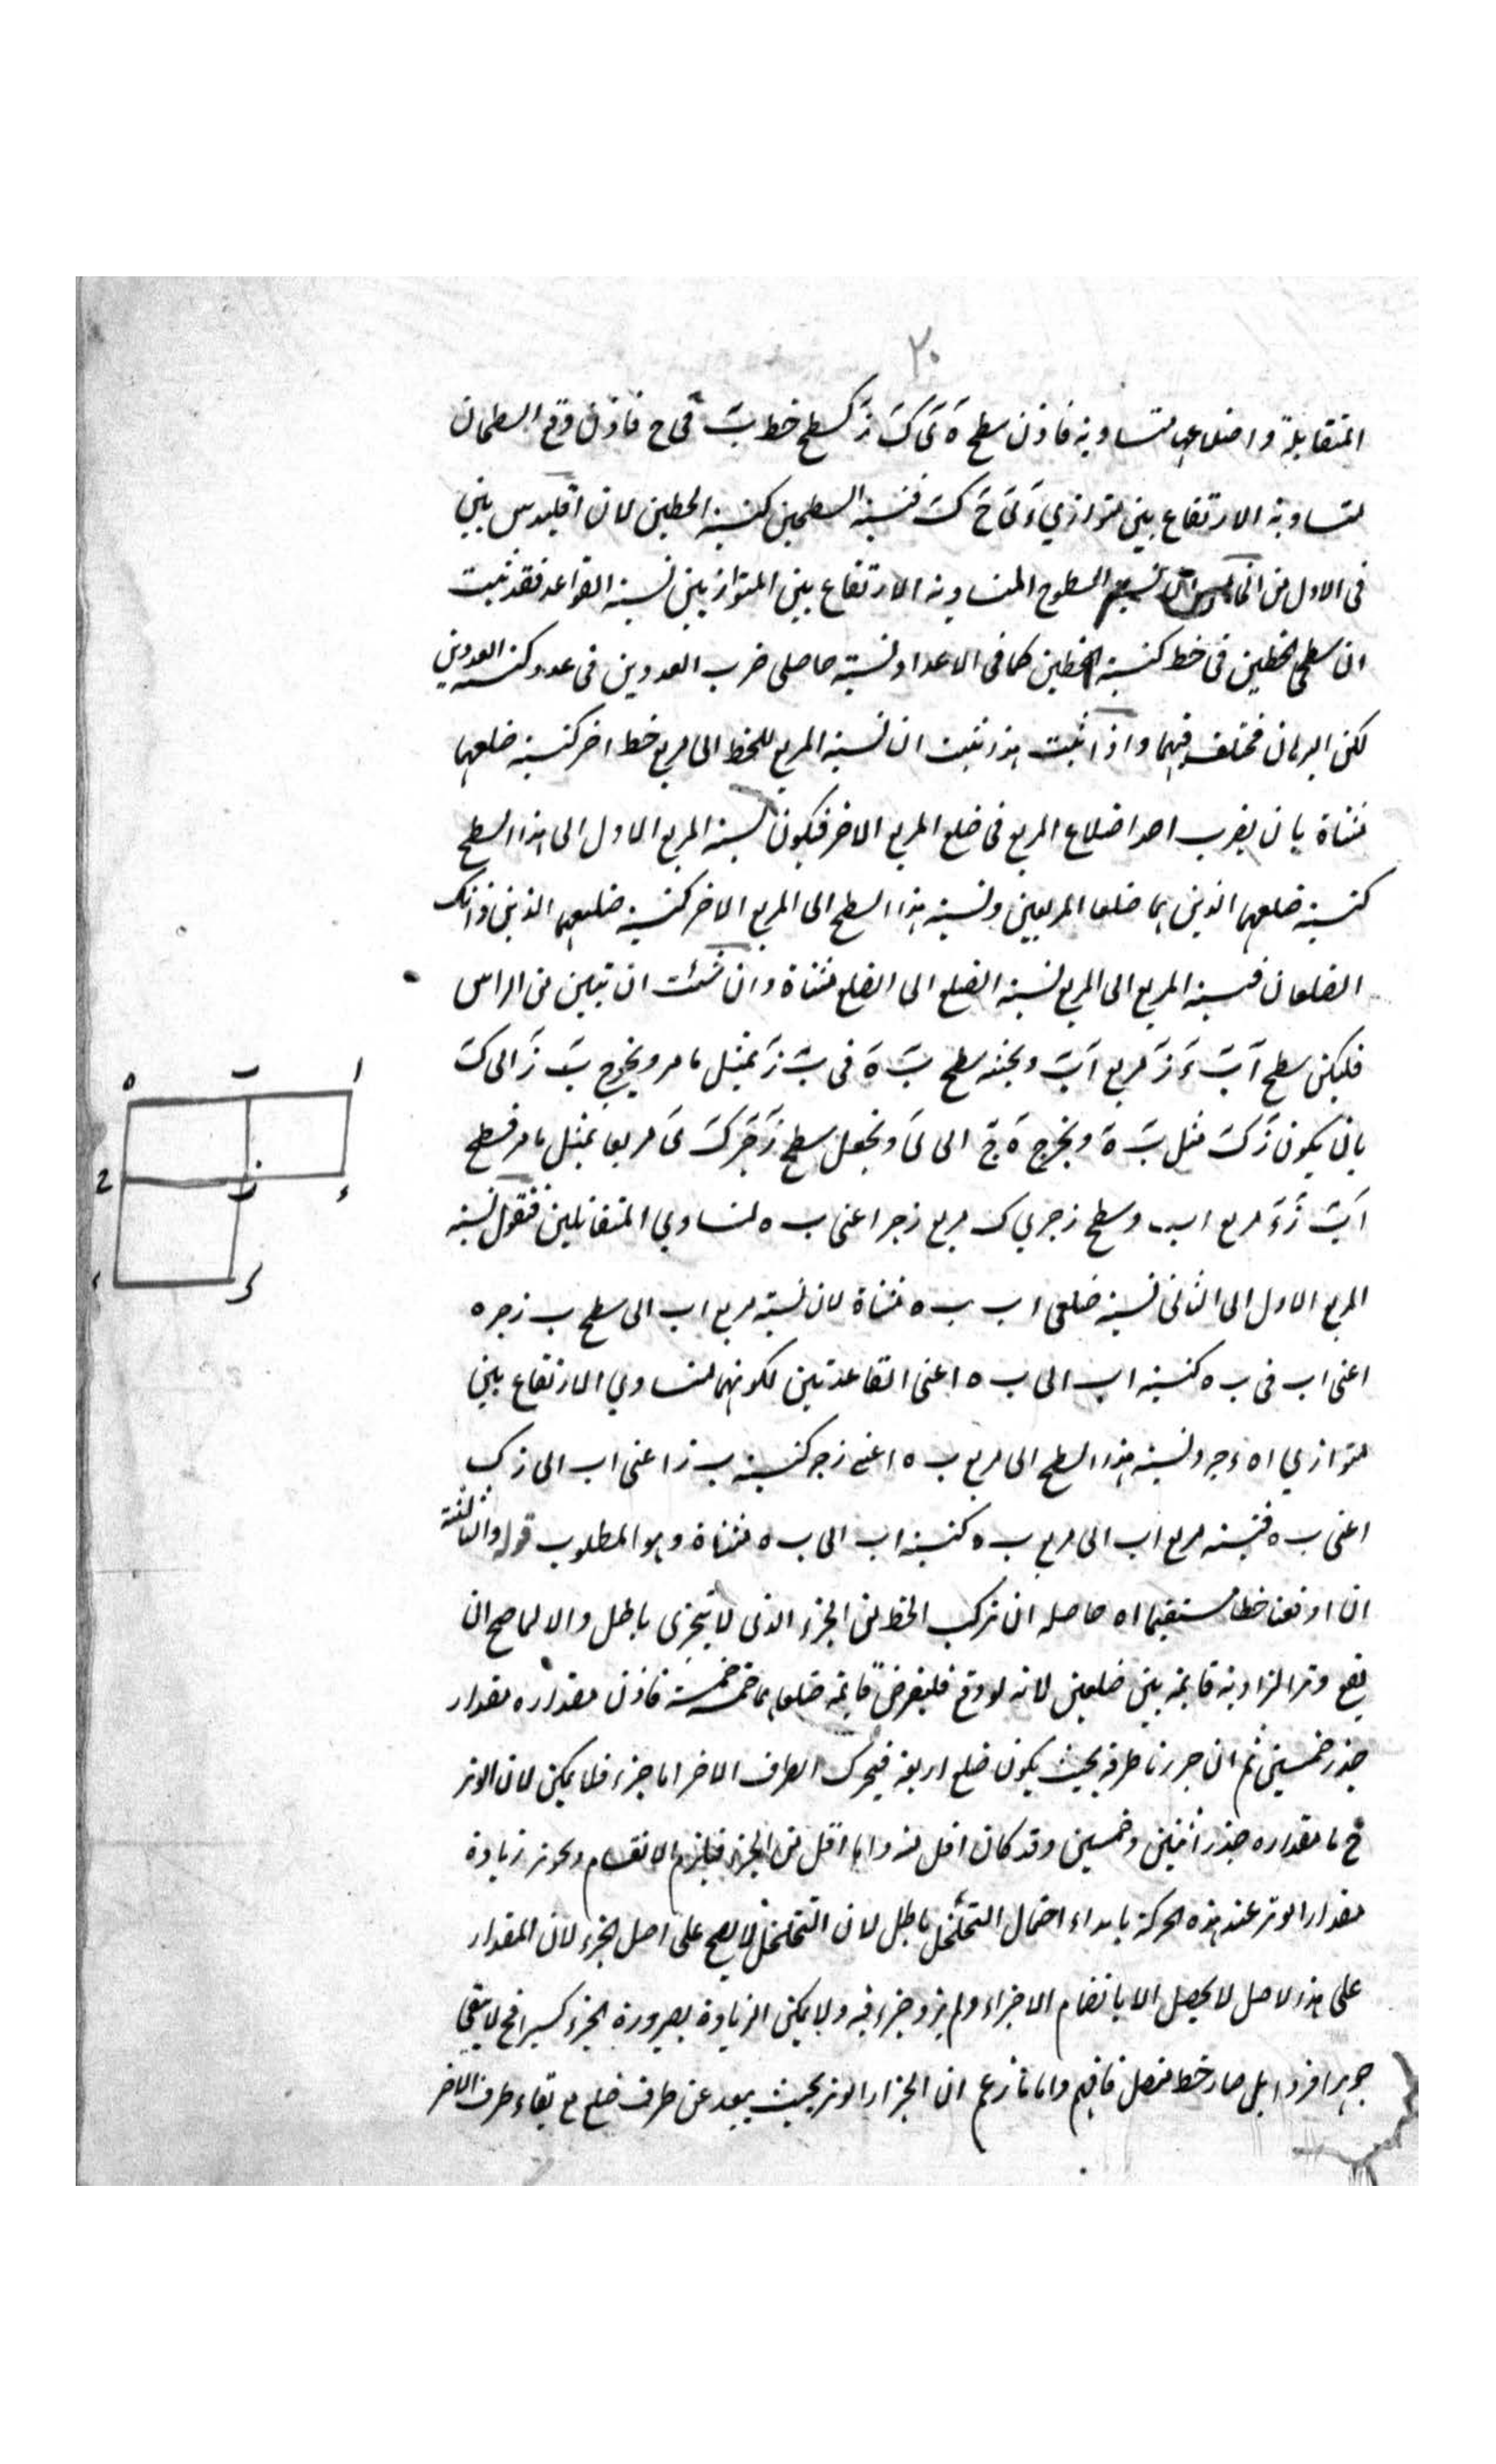 ٢٠
المتقابلة واضلاعها متساوية فاذن سطح هَ یَ کَ زَ کسطح خط بَ فی ح فاذن وقع السطحان
متساویة الارتفاع بین متوازیی ءَ یَ حَ کَ فنسبة السطحین کنسبة الخطین لان اقلیدس بین
فی الاول من السطوح المتساویة الارتفاع بین المتوازیین نسبة القواعد فقد ثبت
ان سطحی خطین فی خط کنسبة الخطین کما فی الاعداد نسبة حاصلی ضرب العددین فی عدد کنسبة العددین
لکن البرهان مختلف فیهما واذا ثبت هذا ثبت ان نسبة المربع للخط الی مربع خط اخر کنسبة ضلعهما
مثناة بان یضرب احد اضلاع المربع فی ضلع المربع الاخر فیکون نسبة المربع الاول الی هذا السطح
کنسبة ضلعهما الذین هما ضلعا المربعین ونسبة هذا السطح الی المربع الاخر کنسبة ضلعیهما الذین ذانک
الضلعان فنسبة المربع الی المربع نسبة الضلع الی الضلع مثناة وان شئت ان تبین من الراس
فلیکن سطح اَ بَ ءَ زَ مربع اَبَ ونجنه سطح بَ هَ فی بَ زَ بمثل ما مر ویخرج بَ زَ الی کَ
بان یکون زَ کَ مثل بَ هَ ویخرج هَ جَ الی یَ ونجعل سطح زَ جَر کَ یَ مربعا بمثل ما مر فسطح
اَبَ زَءَ مربع اب وسطح زجر ی ک مربع زجر اعنی ب ه لتساوی المتقابلین فنقول نسبة
المربع الاول الی الثانی نسبة ضلعی اب ب ه مثناة لان نسبة مربع اب الی سطح ب زجر ه
اعنی اب فی ب ه کنسبة اب الی ب ه اعنی القاعدتین لکونهما متساوی الارتفاع بین
متوازیی اه ءجر ونسبة هذا السطح الی مربع ب ه اعنی زجر کنسبة ب ز اعنی اب الی زک
اعنی ب ه فنسبة مربع اب الی مربع ب ه کنسبة اب الی ب ه مثناة وهو المطلوب قوله والثالثة
ان اوقعنا خطا مستقیما اه حاصله ان ترکب الخط من الجزء الذی لا یتجزی باطل والا لما صح ان
یقع وتر الزاویة قایمة بین ضلعین لانه لو وقع فلیفرض قایمة ضلعاها خمسة خمسة فاذن مقداره مقدار
جذر خمسین ثم ان جررنا طرفه بحیث یکون ضلع اربعة فیحرک الطرف الاخر اما جزء فلا یمکن لان الوتر
ح ما مقداره جذر اثنین وخمسین وقد کان اقل منه واما اقل من الجزء فیلزم الانقسام وتجویز زیادة
مقدار الوتر عند هذه الحرکة بابداء احتمال التخلخل باطل لان التخلخل لا یصح علی اصل الجزء لان المقدار
علی هذا الاصل لا یحصل الا بانضمام الاجزاء ولم یزد جزء فیه ولا یمکن الزیادة بصیرورة الجزء کبیرا فح لا یبقی
جوهرا فردا بل صار خط متصل فافهم واما ما زعم ان انجرار الوتر بحیث یبعد عن طرف ضلع مع بقاء طرف الاخر
ه ب ا
ح ز ء
ی ک